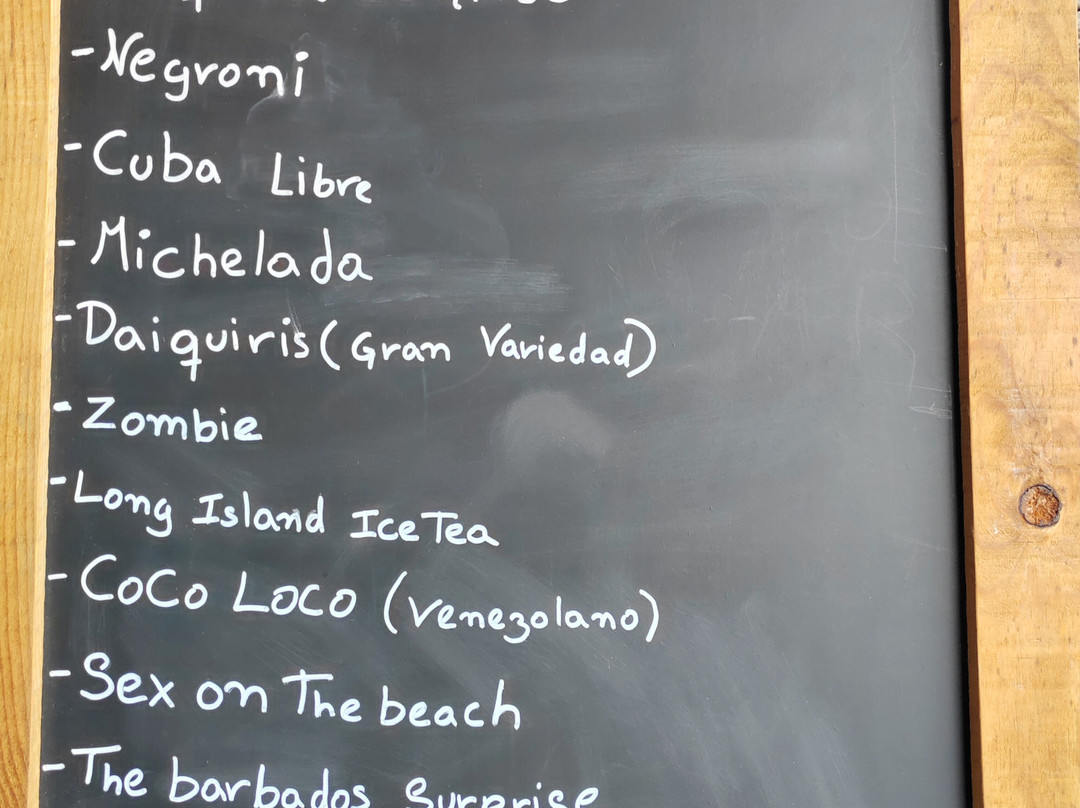 -Negroni
-Cuba Libre
-Michelada
-Daiquiris (Gran Variedad)
-Zombie
-Long Island Ice Tea
-CoCo Loco (Venezolano)
-Sex on The beach
-The barbados Surprise